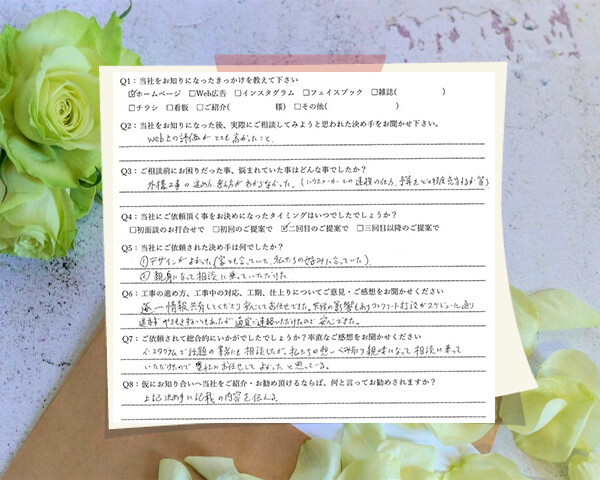 Q1：当社をお知りになったきっかけを教えて下さい
☑ホームページ □Web広告 □インスタグラム □フェイスブック □雑誌( )
□チラシ □看板 □ご紹介( 様) □その他( )
Q2：当社をお知りになった後、実際にご相談してみようと思われた決め手をお聞かせ下さい。
Web上の評価がとても高かったこと。
Q3：ご相談前にお困りだった事、悩まれていた事はどんな事でしたか？
外構工事の進め方、考え方がわからなかった。(ハウスメーカーとの連携の仕方、予算をどの程度充当するか等)
Q4：当社にご依頼頂く事をお決めになったタイミングはいつでしたでしょうか？
□初面談のお打合せで □初回のご提案で ☑二回目のご提案で □三回目以降のご提案で
Q5：当社にご依頼された決め手は何でしたか？
①デザインがよかった(家とも合っていた、私たちの好みに合っていた)
②親身になって相談に乗っていただけた
Q6：工事の進め方、工事中の対応、工期、仕上りについてご意見・ご感想をお聞かせください
逐一情報共有してくださり安心してお任せできた。天候の影響もありコンクリート打設がスケジュール通り
進まずやきもきするいもあったが適宜ご連絡いただけたので安心できた。
Q7：ご依頼されて総合的にいかがでしたでしょうか？率直なご感想をお聞かせください
インスタグラムで話題の業者にも相談したが、私たちの想いくみ取り親味になって相談に乗って
いただけたので貴社にお任せしてよかったと思っている。
Q8：仮にお知り合いへ当社をご紹介・お勧め頂けるならば、何と言ってお勧めされますか？
上記決め手に記載の内容を伝える。